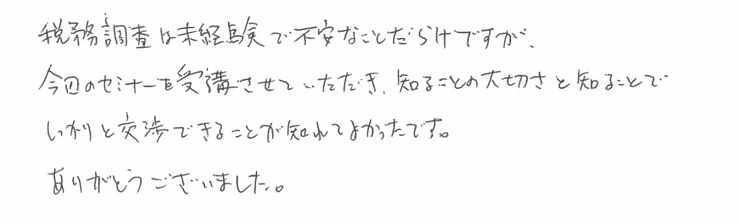 税務調査は未経験で不安なことだらけですが、
今回のセミナーを受講させていただき、知ることの大切さと知ることで
しっかりと交渉できることが知れてよかったです。
ありがとうございました。